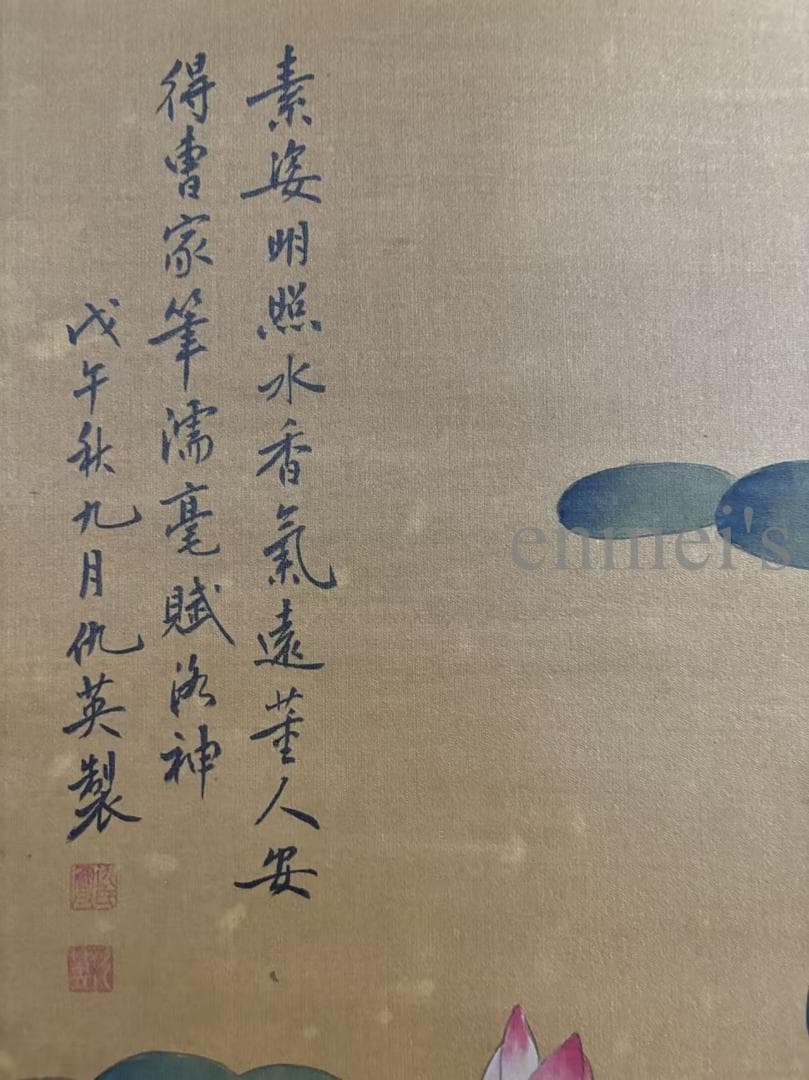 素姿明照水香氣遠薰人安
得曹家筆濡毫賦洛神
戊午秋九月仇英製
enmei's